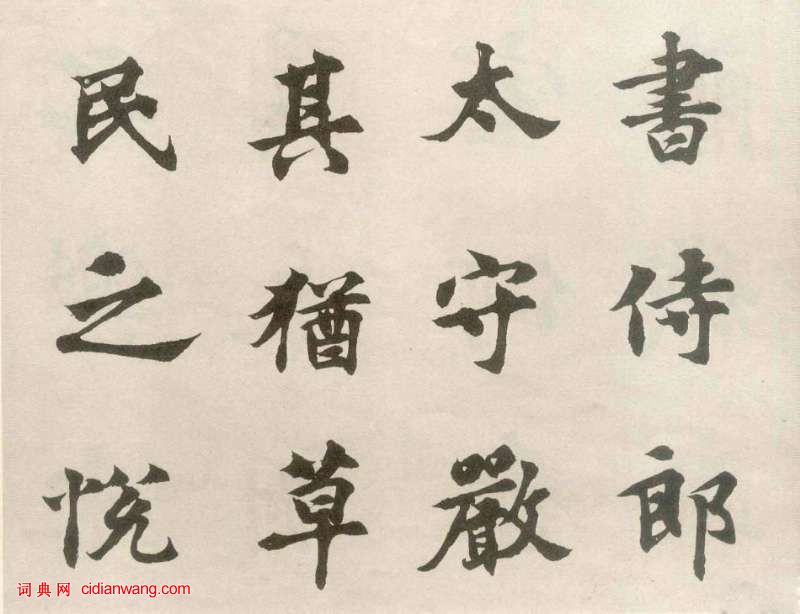 書侍郎
太守嚴
其猶草
民之悦
词典网 cidianwang.com